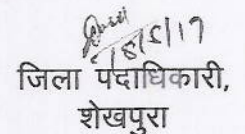 18/5/17
जिला पदाधिकारी,
शेखपुरा